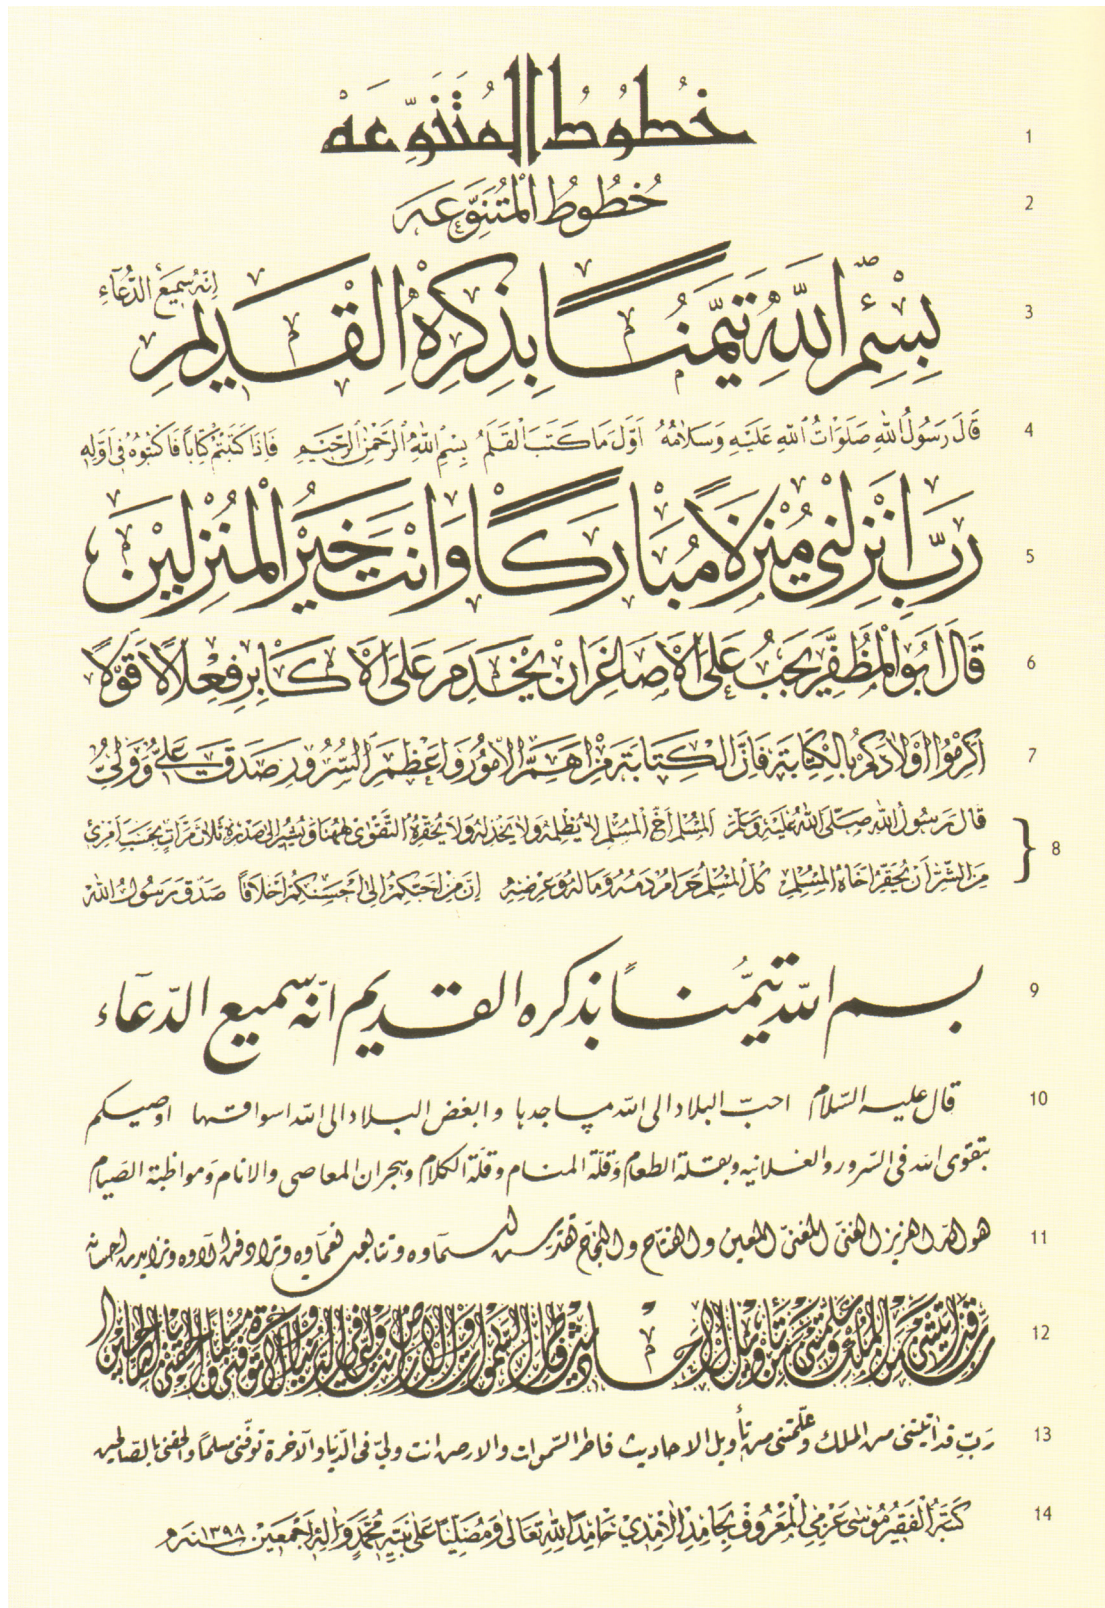 خطوط المتنوعه 1
خُطُوطُ الْمُتَنَوِّعَه 2
بِسْمِ اللَّهِ تَيَمُّنًا بِذِكْرِهِ الْقَدِيمِ إِنَّهُ سَمِيعُ الدُّعَاءِ 3
قَالَ رَسُولُ اللهِ صَلَوَاتُ اللهِ عَلَيْهِ وَسَلَامُهُ اَوَّلُ مَا كَتَبَ الْقَلَمُ بِسْمِ اللهِ الرَّحْمٰنِ الرَّحِيمِ فَاِذَا كَتَبْتُمْ كِتَاباً فَاكْتُبُوهُ فِى اَوَّلِهِ 4
رَبِّ اَنْزِلْنِى مُنْزَلًا مُبَارَكًا وَاَنْتَ خَيْرُ الْمُنْزِلِينَ 5
قَالَ اَبُو الْمُظَفَّرِ يَجِبُ عَلَى الْاَصَاغِرِ اَنْ يَخْدِمَ عَلَى الْاَكَابِرِ فِعْلًا لَا قَوْلًا 6
اَكْرِمُوا اَوْلَادَكُمْ بِالْكِتَابَةِ فَاِنَّ الْكِتَابَةَ مِنْ اَهَمِّ الْاُمُورِ وَاَعْظَمِ السُّرُورِ صَدَقَ عَلِىٌّ وَوَلِىٌّ 7
قَالَ رَسُولُ اللهِ صَلَّى اللهُ عَلَيْهِ وَسَلَّمَ اَلْمُسْلِمُ اَخُ الْمُسْلِمِ لَا يَظْلِمُهُ وَلَا يَخْذِلُهُ وَلَا يُحَقِّرُهُ اَلتَّقْوٰى هٰهُنَا وَيُشِيرُ اِلٰى صَدْرِهِ ثَلَاثَ مَرَّاتٍ بِحَسْبِ امْرِئٍ 8
مِنَ الشَّرِّ اَنْ يُحَقِّرَ اَخَاهُ الْمُسْلِمَ كُلُّ الْمُسْلِمِ حَرَامٌ دَمُهُ وَمَالُهُ وَعِرْضُهُ اِنَّ مِنْ اَحَبِّكُمْ اِلَىَّ اَحْسَنُكُمْ اَخْلَاقًا صَدَقَ رَسُولُ اللهِ
بسم الله تيمّناً بذكره القديم انّه سميع الدّعاء 9
قال عليه السّلام احبّ البلاد الى الله مساجدها وابغض البلاد الى الله اسواقها اوصيكم 10
بتقوى الله فى السّرور والعلانيه وبقلة الطعام وقلّة المنام وقلّة الكلام وهجران المعاصى والانام ومواظبة الصيام
هو الله العزيز الغنى المغنى المعين والفتاح والنجاح 11
رب قد اتيتنى من الملك وعلمتنى من تأويل الاحاديث فاطر السموات والارض انت ولى فى الدنيا والاخرة توفنى مسلما والحقنى بالصالحين 12
رَبِّ قد اتيتنى من الملك وعلّمتنى من تأويل الاحاديث فاطر السّموات والارض انت ولىّ فى الدّنيا والآخرة توفّنى مسلماً والحقنى بالصّالحين 13
كَتَبَهُ الْفَقِيرُ مُوسٰى عَزْمِى الْمَعْرُوفُ بِحَامِدِ الْاٰمِدِى حَامِدًا لِلّٰهِ تَعَالٰى وَمُصَلِّيًا عَلٰى نَبِيِّهِ مُحَمَّدٍ وَاٰلِهِ اَجْمَعِينَ سنه ١٣٩٨ 14